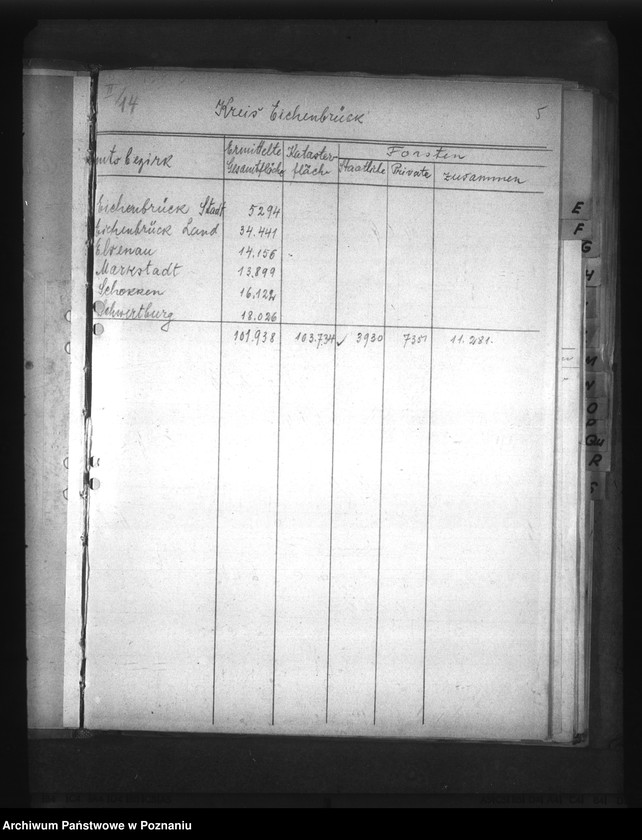 II/14
Kreis Eichenbrück
5
Amtsbezirk Ermittelte Gesamtfläche Kataster-fläche Forsten
Staatliche Private zusammen
Eichenbrück Stadt 5294
Eichenbrück Land 34.441
Elsenau 14.156
Markstadt 13.899
Schokken 16.122
Schwertburg 18.026
101.938 103.734 3930 7351 11.281.
E
F
G
H
M
N
O
P
Qu
R
S
Archiwum Państwowe w Poznaniu